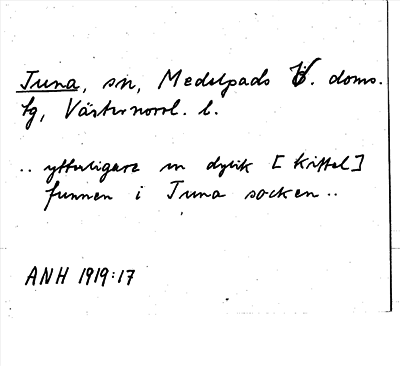 Tuna, sn, Medelpads V. doms.
tg, Västernorrl. l.
.. ytterligare en dylik [kittel]
funnen i Tuna socken ..
ANH 1919:17